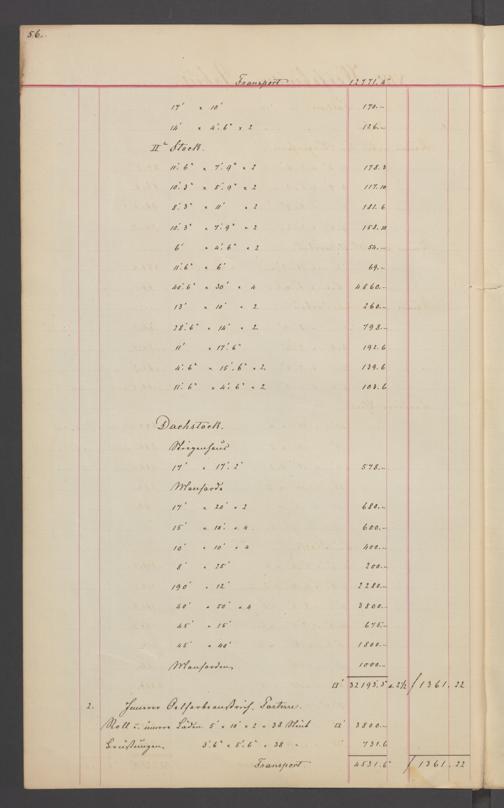 56.
Transport 12771.4"
17' × 10' 170.–
14' × 4'.6" × 2 126.–
IIr Stock.
11'.6" × 7'.9" × 2 178.3
10'.3" × 5'.9" × 2 117.10
8'.3" × 11' × 2 181.6
10'.3" × 7'.9" × 2 158.10
6' × 4'.6" × 2 54.–
11'.6" × 6' 69.–
40'.6" × 30' × 4 4860.–
13' × 10' × 2 260.–
28'.6" × 14' × 2 798.–
11' × 17'.6" 192.6
4'.6" × 15'.6" × 2 139.6
11'.6" × 4'.6" × 2 103.6
Dachstock.
Stiegenhaus
17' × 17'.2' 578.–
Mansarde
17' × 20' × 2 680.–
15' × 10' × 4 600.–
10' × 10' × 4 400.–
8' × 25' 200.–
190' × 12' 2280.–
40' × 50' × 4 3800.–
45' × 15' 675.–
45' × 40' 1800.–
Mansarden 1000.–
□' 32193.5 a 2½ f 1361.22
2. Innerer Oelfarbenanstrich,
Roll u. innere Läden 5' × 10' × 2 × 38 Stück □' 3800.–
Brüstungen 3'.6" × 5'.6" × 38 " " 731.6
Transport 4531.6" f 1361.22